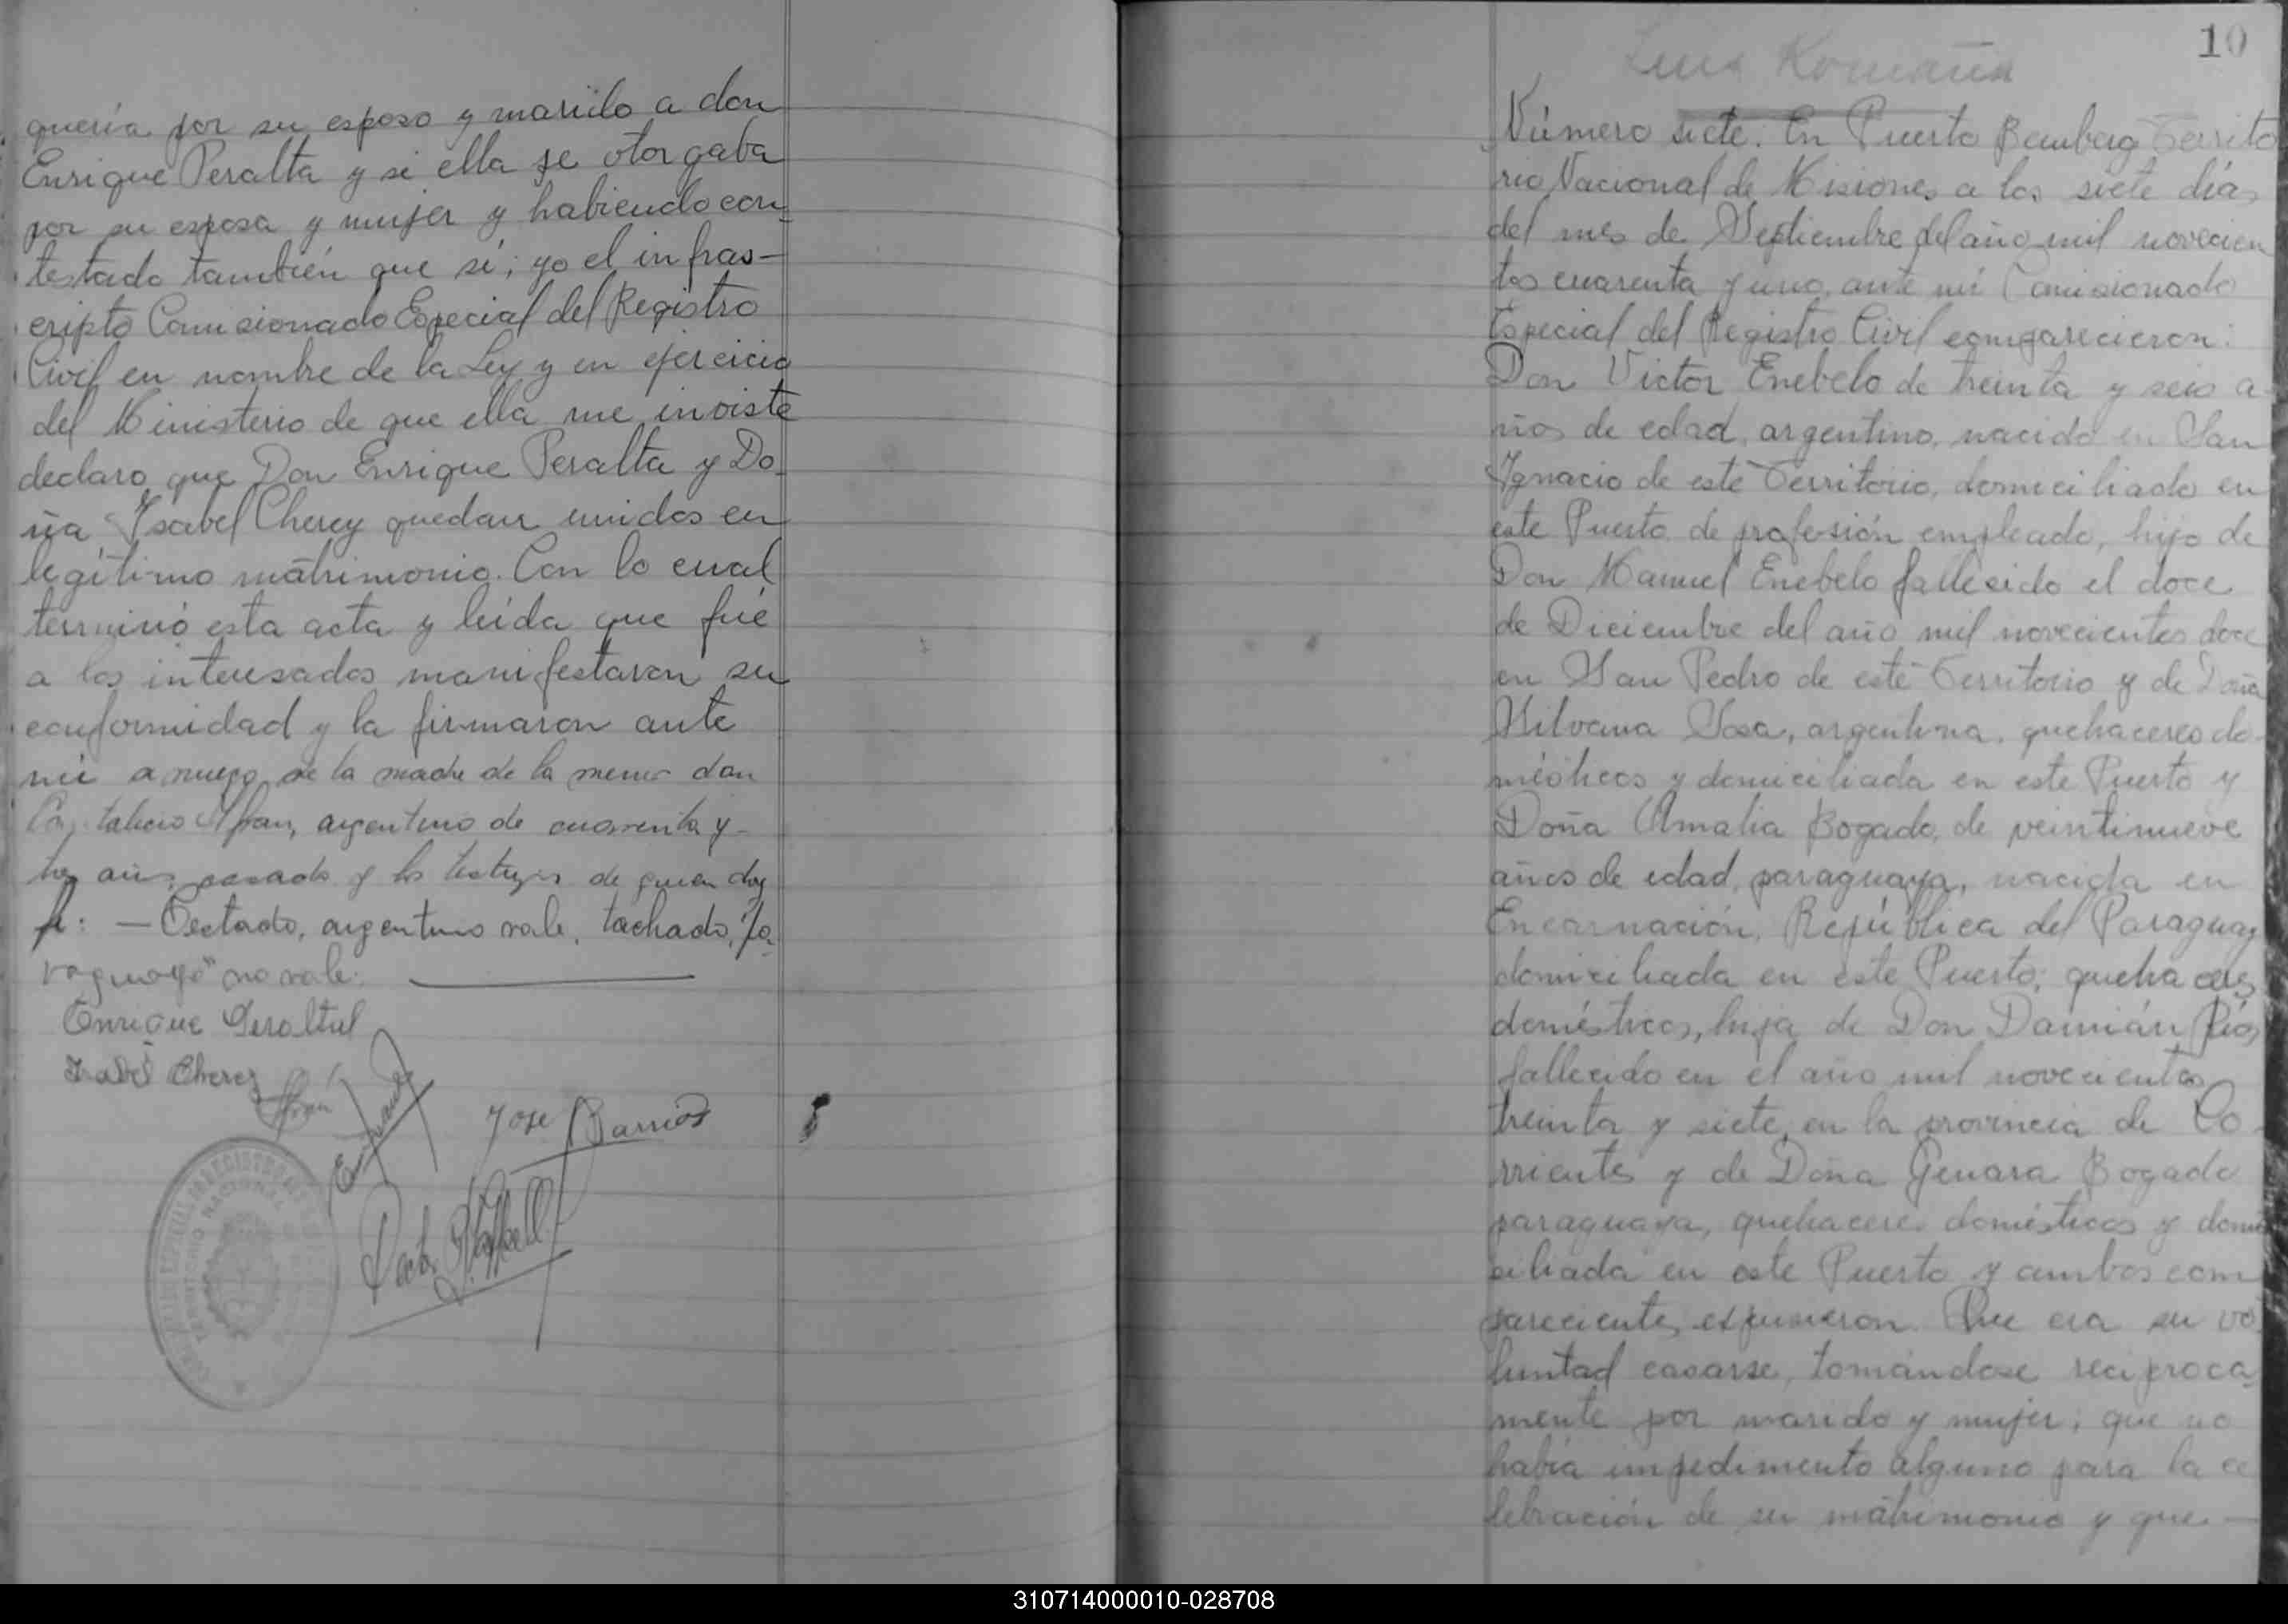 quería por su esposo y marido a don
Enrique Peralta y si ella se otorgaba
por su esposa y mujer y habiendo con_
testado también que sí; yo el infras-
cripto Comisionado Especial del Registro
Civil en nombre de la Ley y en ejercicio
del Ministerio de que ella me inviste
declaro que Don Enrique Peralta y Do_
ña Ysabel Cherey quedan unidos en
legítimo matrimonio. Con lo cual
terminó esta acta y leída que fué
a los interesados manifestaron su
conformidad y la firmaron ante
mí a ruego de la madre de la menor don
argentino de cuarenta y
años, casado y los testigos de quien doy
fe: — Testado, argentino vale, tachado, "pa_
raguayo" no vale.
Enrique Peralta
Isabel Cherey
Jose Barrios
10
Luis Romaña
Número siete. En Puerto Bemberg Territo
rio Nacional de Misiones a los siete días
del mes de Septiembre del año mil novecien
tos cuarenta y uno, ante mí Comisionado
Especial del Registro Civil comparecieron:
Don Victor Enebelo de treinta y seis a-
ños de edad, argentino, nacido en San
Ygnacio de este Territorio, domiciliado en
este Puerto de profesión empleado, hijo de
Don Manuel Enebelo fallecido el doce
de Diciembre del año mil novecientos doce
en San Pedro de este Territorio y de Doña
Silvana Sosa, argentina, quehaceres do-
mésticos y domiciliada en este Puerto y
Doña Amalia Bogado, de veintinueve
años de edad, paraguaya, nacida en
Encarnación, República del Paraguay
domiciliada en este Puerto; quehaceres
domésticos, hija de Don Damián Ríos
fallecido en el año mil novecientos
treinta y siete en la provincia de Co_
rrientes y de Doña Genara Bogado
paraguaya, quehaceres domésticos y domi
ciliada en este Puerto y ambos com
parecientes expusieron. Que era su vo_
luntad casarse, tomándose recíproca_
mente por marido y mujer; que no
había impedimento alguno para la ce
lebración de su matrimonio y que —
310714000010-028708